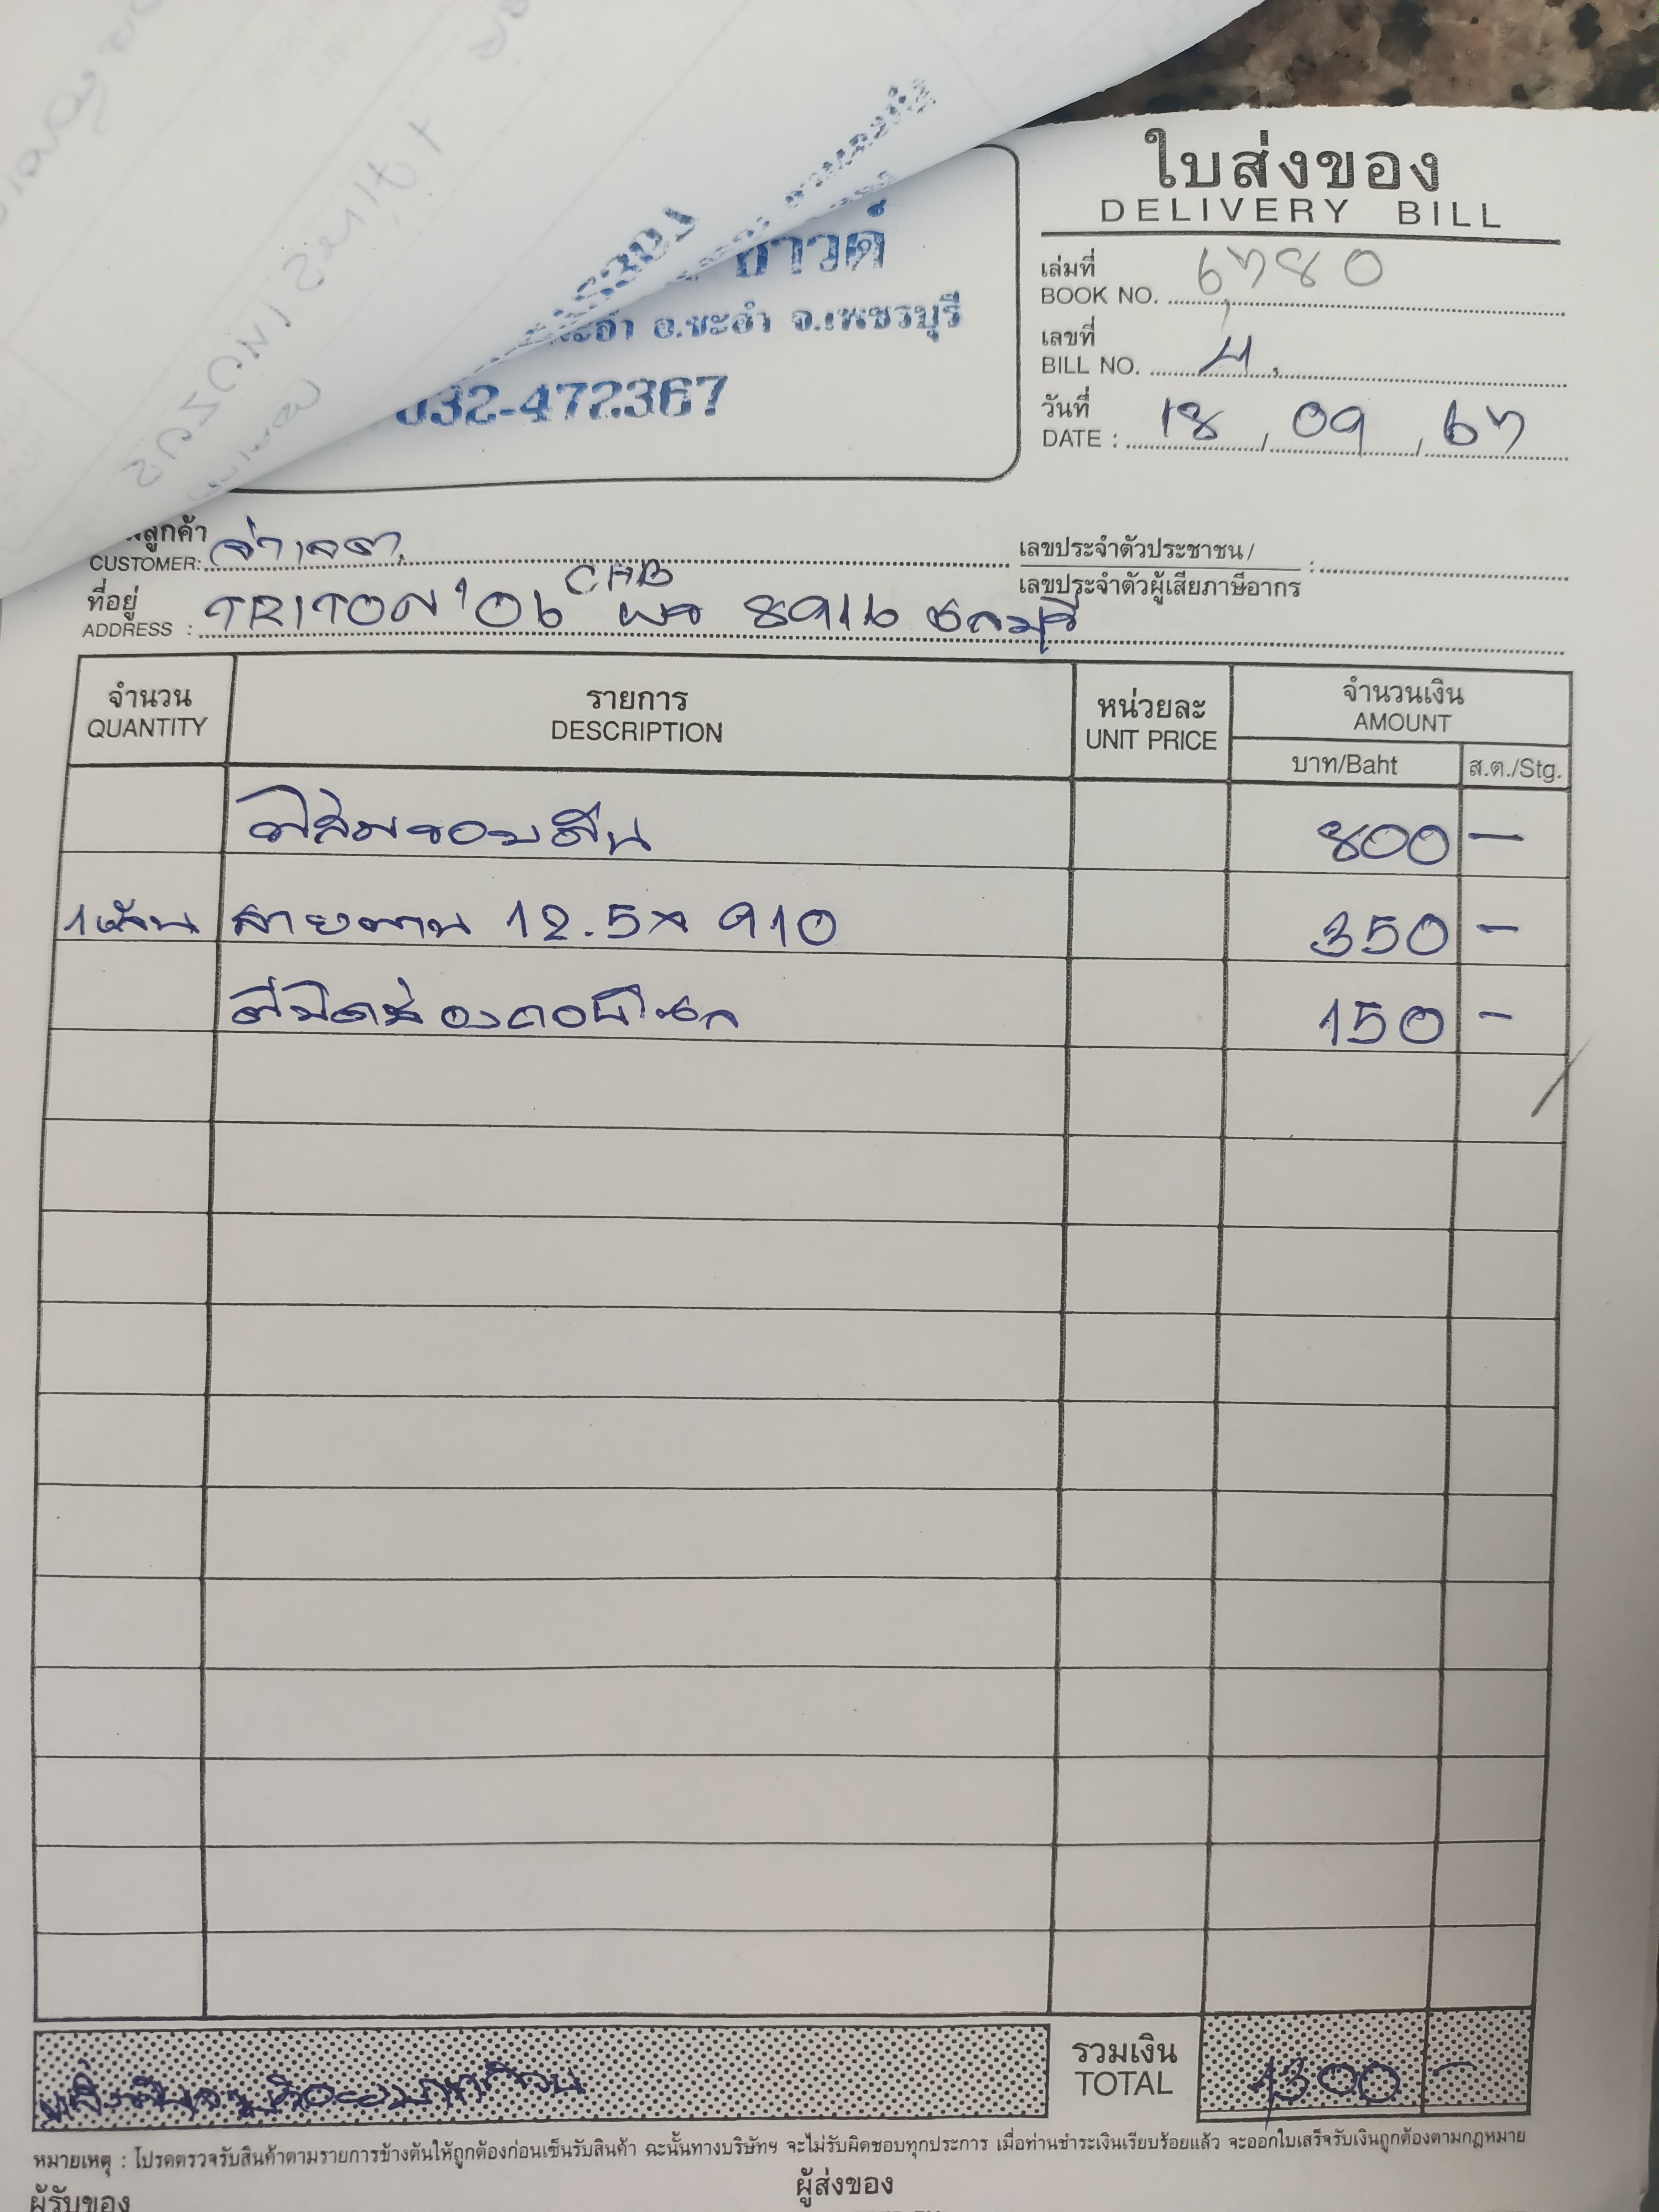 ใบส่งของ
DELIVERY BILL
ซาวด์
อ.ชะอำ จ.เพชรบุรี
032-472367
เล่มที่ 6780
BOOK NO.
เลขที่ 4.
BILL NO.
วันที่ 18 / 09 / 67
DATE :
ลูกค้า
CUSTOMER:
เลขประจำตัวประชาชน /
เลขประจำตัวผู้เสียภาษีอากร :
ที่อยู่ TRITON '06 CAB ผง 8916 ชลบุรี
ADDRESS :
จำนวน รายการ หน่วยละ จำนวนเงิน
QUANTITY DESCRIPTION UNIT PRICE AMOUNT
บาท/Baht ส.ต./Stg.
800 -
1 เส้น สายพาน 12.5 x 910 350 -
150 -
หนึ่งพันสามร้อยบาทถ้วน
รวมเงิน 1300 -
TOTAL
หมายเหตุ : โปรดตรวจรับสินค้าตามรายการข้างต้นให้ถูกต้องก่อนเซ็นรับสินค้า ฉะนั้นทางบริษัทฯ จะไม่รับผิดชอบทุกประการ เมื่อท่านชำระเงินเรียบร้อยแล้ว จะออกใบเสร็จรับเงินถูกต้องตามกฎหมาย
ผู้รับของ ผู้ส่งของ